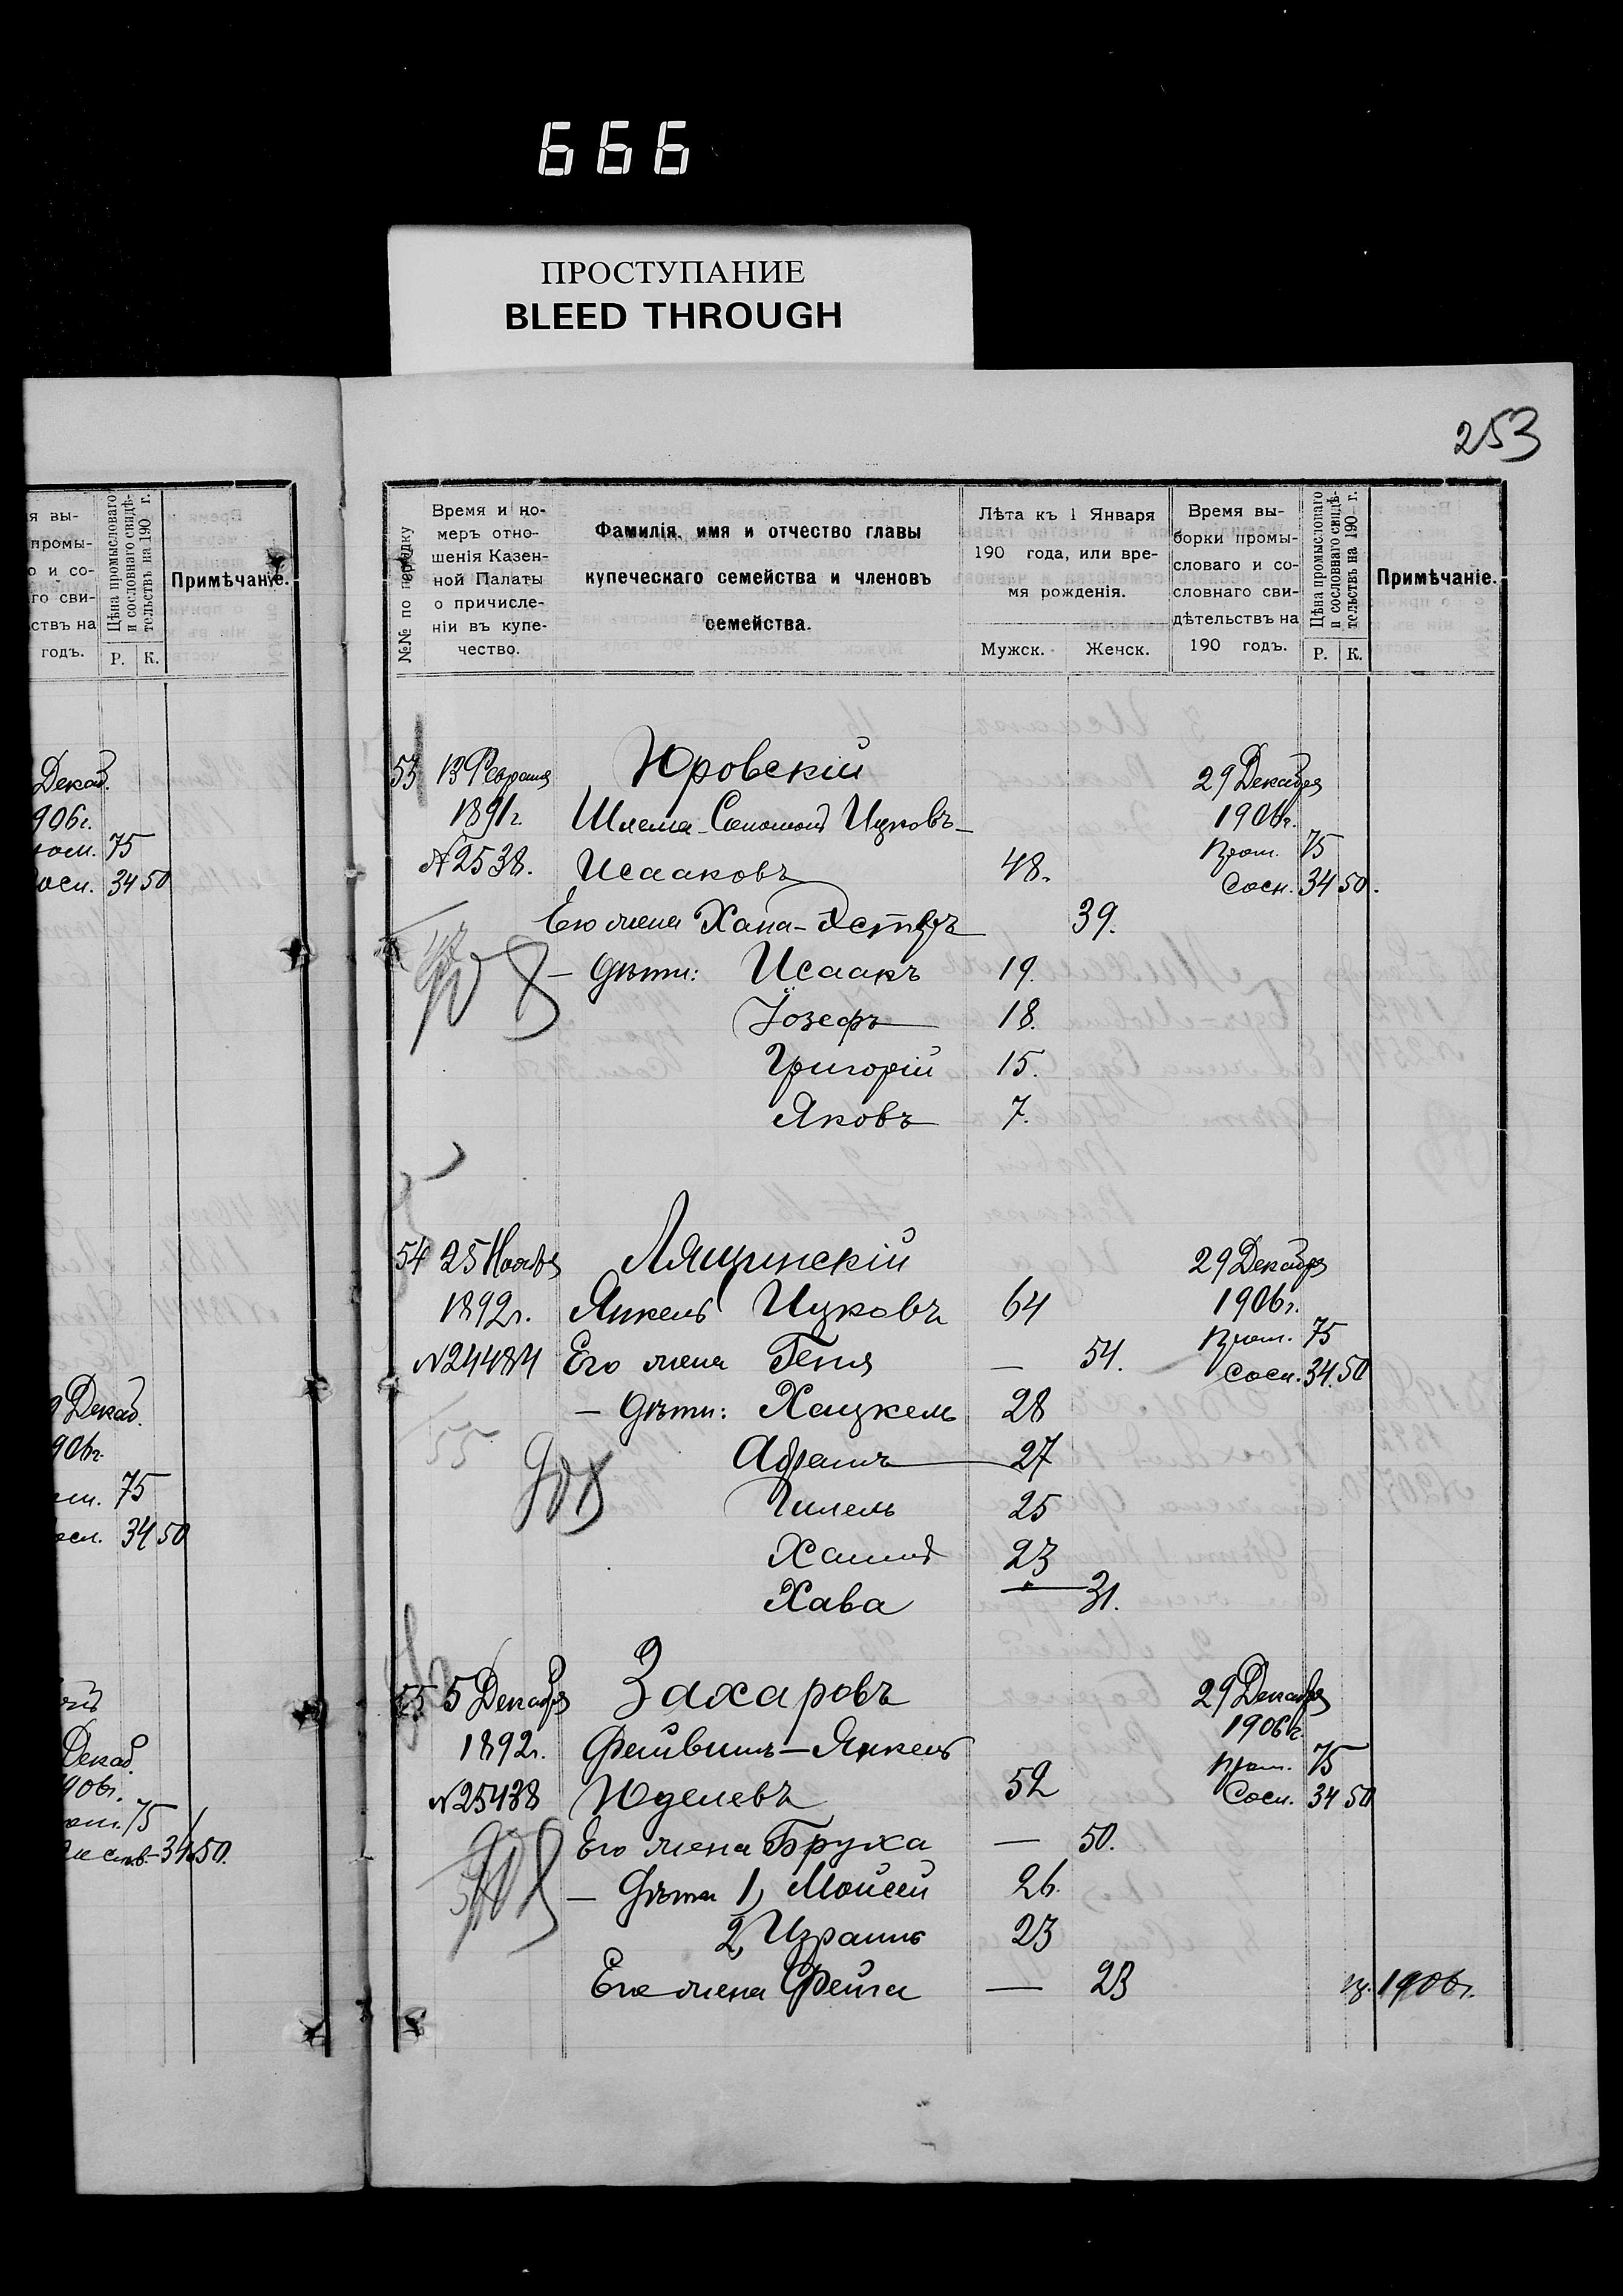 666
ПРОСТУПАНИЕ
BLEED THROUGH
253
я вы-
промы-
о и со-
го сви-
ствъ на
годъ.
Цѣна промысловаго
и сословнаго свидѣ-
тельствъ на 190 г.
Р. К.
Примѣчаніе.
Декаб.
906г.
75
сосл. 34 50
9 Декаб.
906г.
75
34 50
Декаб.
906г.
75
34 50.
№№ по порядку
Время и но-
меръ отно-
шенія Казен-
ной Палаты
о причисле-
ніи въ купе-
чество.
Фамилія, имя и отчество главы
купеческаго семейства и членовъ
семейства.
Лѣта къ 1 Января
190 года, или вре-
мя рожденія.
Мужск. Женск.
Время вы-
борки промы-
словаго и со-
словнаго сви-
дѣтельствъ на
190 годъ.
Цѣна промысловаго
и сословнаго свидѣ-
тельствъ на 190 г.
Р. К.
Примѣчаніе.
53 13 Февраля Юровскій 29 Декабря
1891г. Шлема-Соломонъ Ицковъ- 1906г.
Пром. 75
№2538. Исааковъ 48. Сосл. 34 50.
Его жена Хана-Эстеръ 39.
— Дѣти: Исаакъ 19.
Іозефъ 18.
Григорій 15.
Яковъ 7.
54 25 Ноября Лящинскій 29 Декабря
1892г. Янкель Ицковъ 64 1906г.
Пром. 75
№24484 Его жена Геня — 54. Сосл. 34.50
— Дѣти: Хацкель 28
55 Абрамъ 27
Гилель 25
Хаимъ 23
Хава — 31.
55 5 Декабря Захаровъ 29 Декабря
1892г. Фейвишъ-Янкель 1906г.
Пром. 75
№25438 Юделевъ 52 Сосл. 34 50
Его жена Бруха — 50.
— Дѣти 1, Мойсей 26.
2, Израиль 23
Его жена Фейга — 23 1906г.